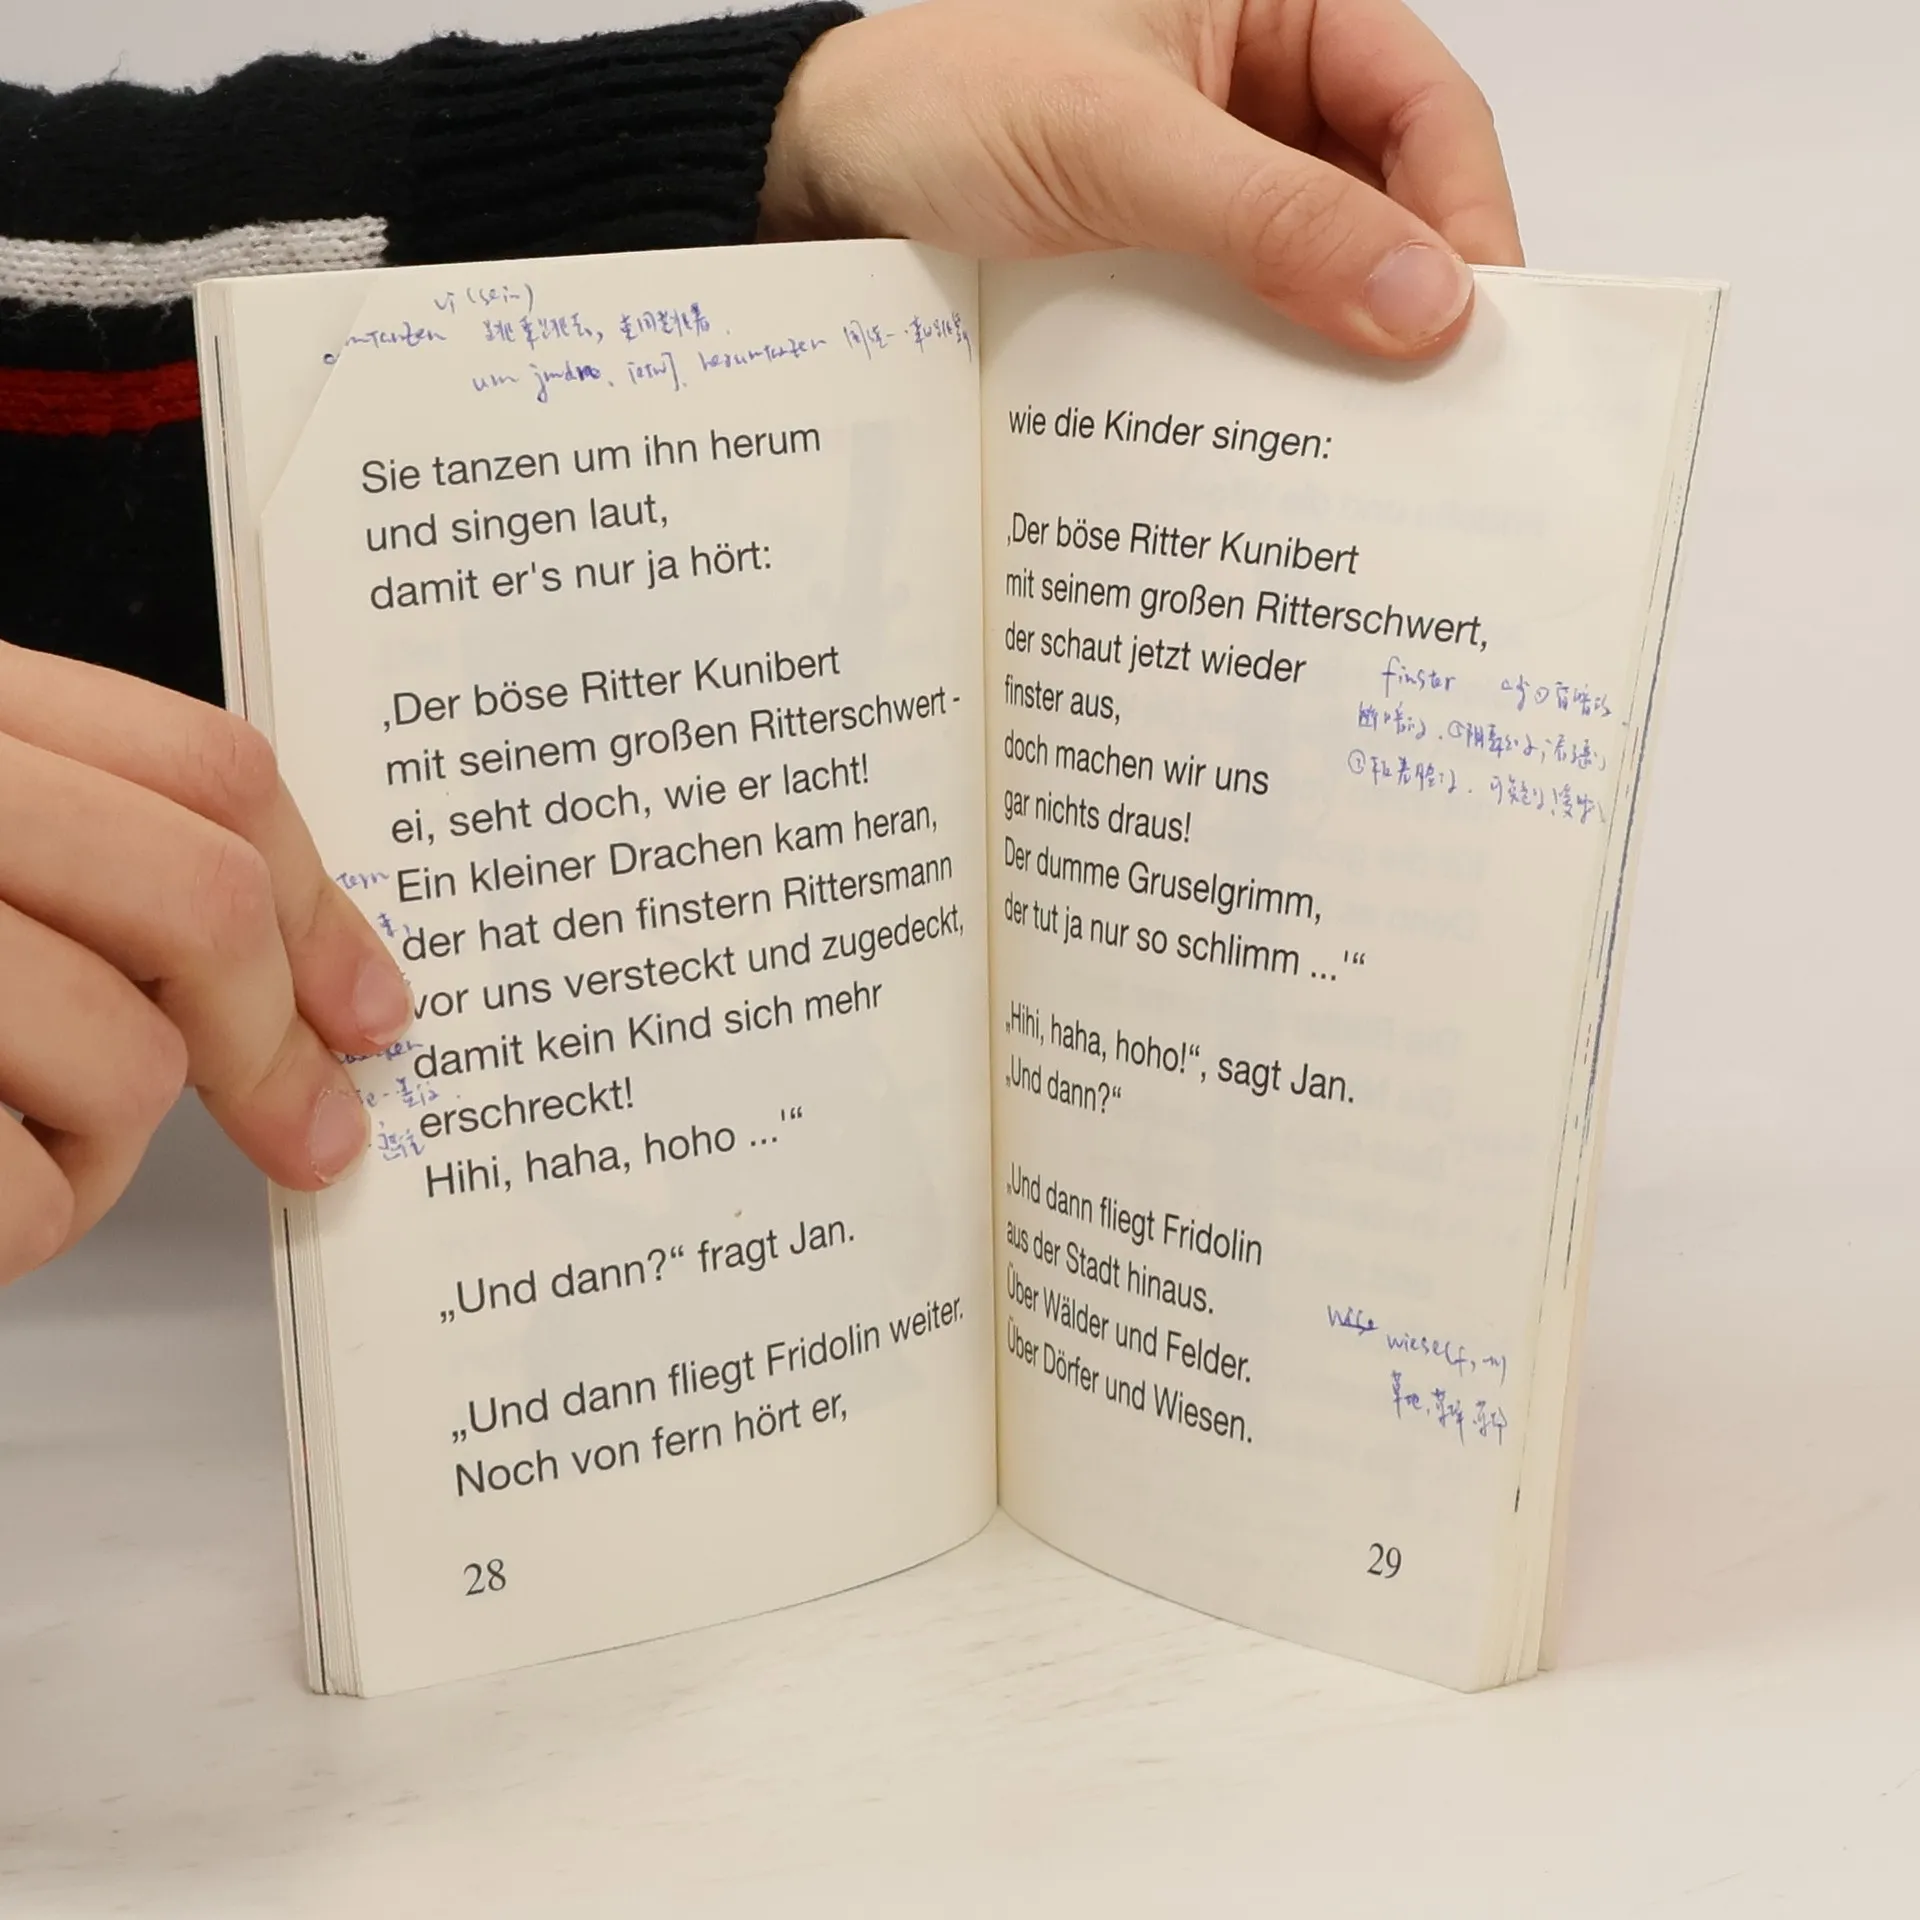 vi (sein)
umtanzen 跳来跳去, 围着跳着.
um jmdn. [etw]. herumtanzen 围绕
Sie tanzen um ihn herum
und singen laut,
damit er's nur ja hört:
‚Der böse Ritter Kunibert
mit seinem großen Ritterschwert -
ei, seht doch, wie er lacht!
Ein kleiner Drachen kam heran,
der hat den finstern Rittersmann
vor uns versteckt und zugedeckt,
damit kein Kind sich mehr
erschreckt!
Hihi, haha, hoho ...'“
„Und dann?“ fragt Jan.
„Und dann fliegt Fridolin weiter.
Noch von fern hört er,
28
wie die Kinder singen:
‚Der böse Ritter Kunibert
mit seinem großen Ritterschwert,
der schaut jetzt wieder
finster aus,
doch machen wir uns
gar nichts draus!
Der dumme Gruselgrimm,
der tut ja nur so schlimm ...'“
„Hihi, haha, hoho!“, sagt Jan.
„Und dann?“
„Und dann fliegt Fridolin
aus der Stadt hinaus.
Über Wälder und Felder.
Über Dörfer und Wiesen.
finster adj ①
wiese(f, -n)
草地,
29